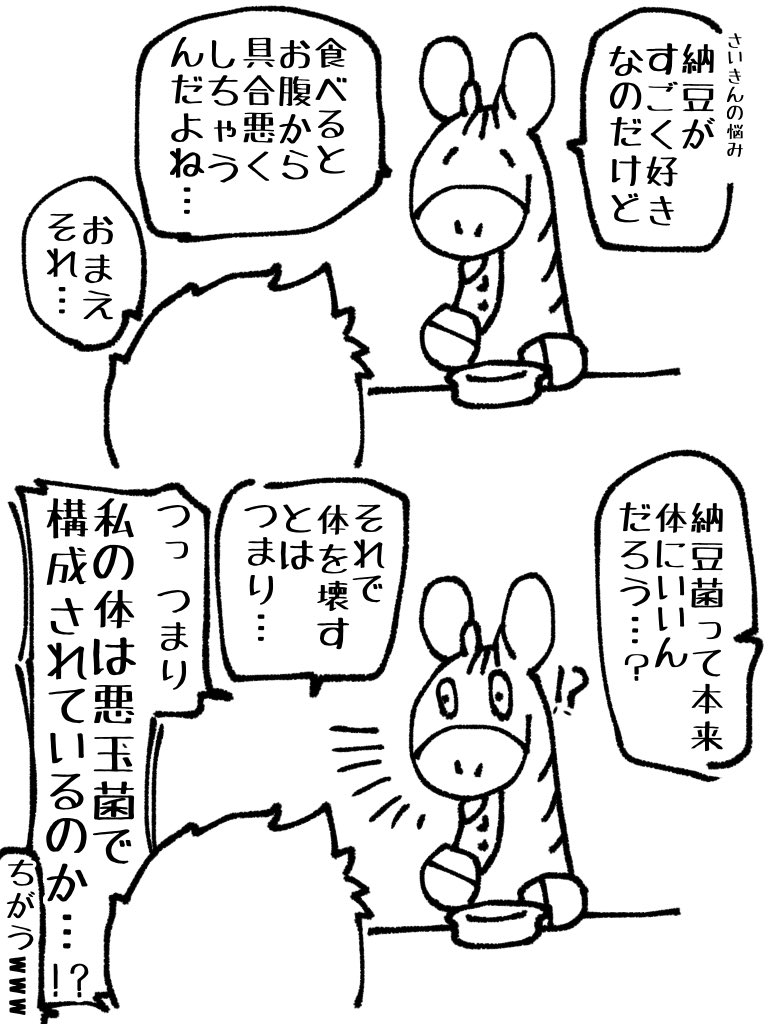 さいきんの悩み
納豆が
すごく好き
なのだけど
食べると
お腹から
具合悪く
しちゃう
んだよね…
おまえ
それ…
納豆菌って本来
体にいいん
だろう…?
!?
それで
体を壊す
とは
つまり…
つっ つまり
私の体は悪玉菌で
構成されているのか…!?
ちがうwww